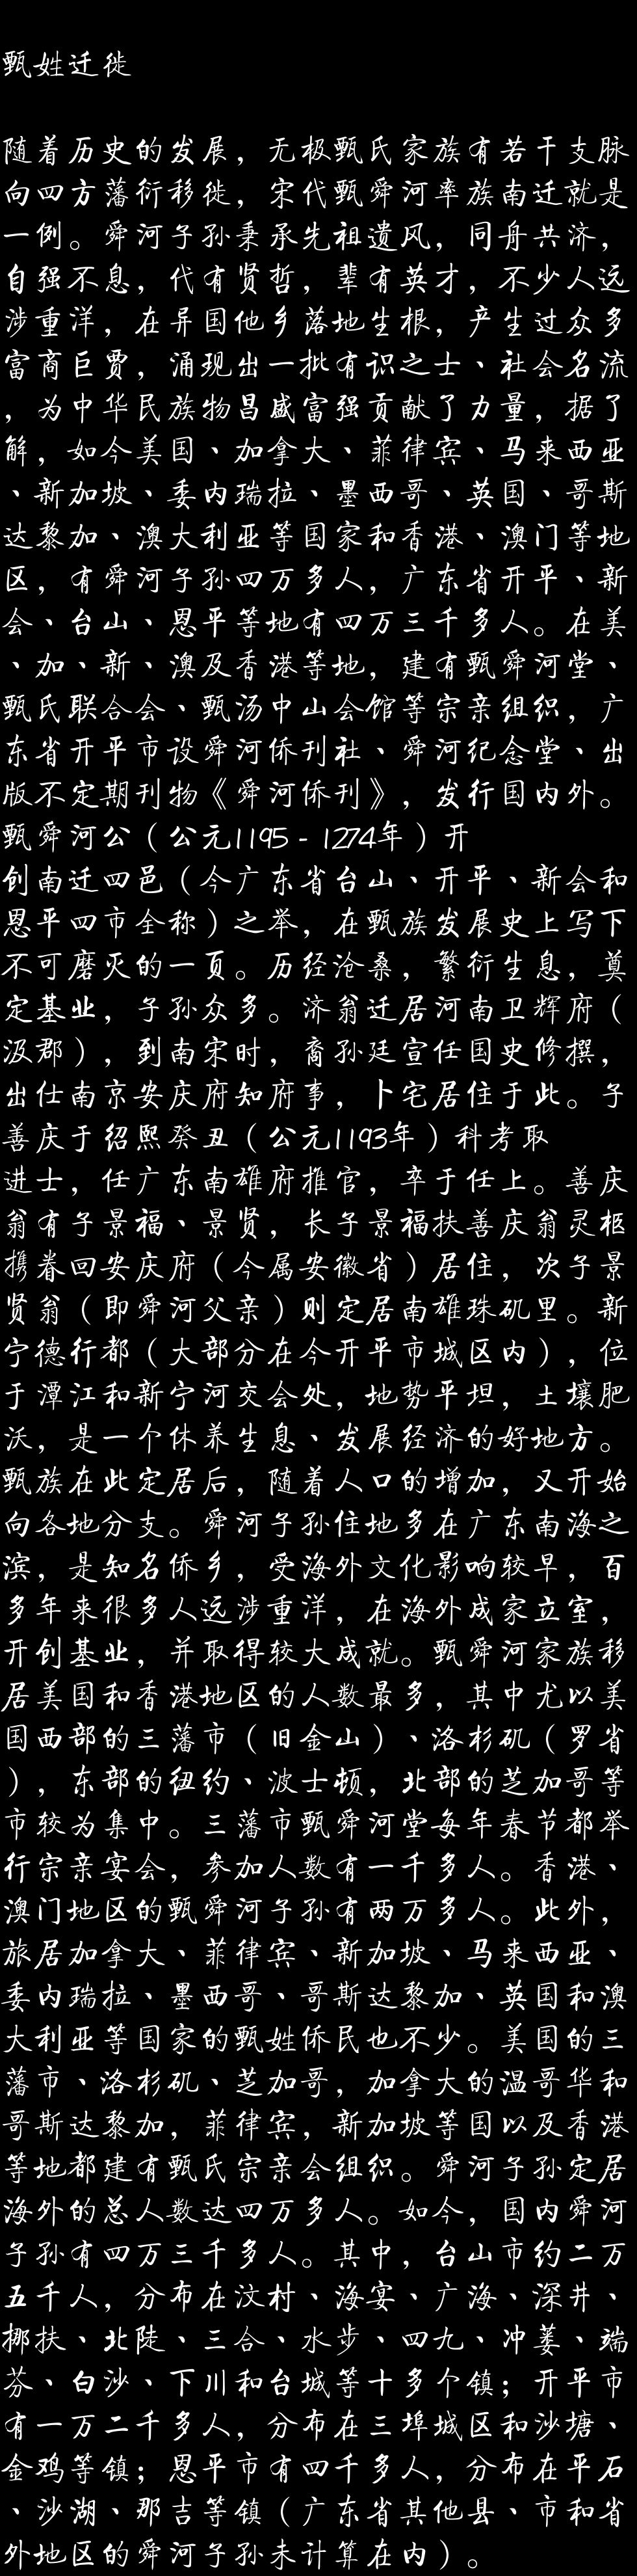 甄姓迁徙
随着历史的发展，无极甄氏家族有若干支脉
向四方藩衍移徙，宋代甄舜河率族南迁就是
一例。舜河子孙秉承先祖遗风，同舟共济，
自强不息，代有贤哲，辈有英才，不少人远
涉重洋，在异国他乡落地生根，产生过众多
富商巨贾，涌现出一批有识之士、社会名流
，为中华民族物昌盛富强贡献了力量，据了
解，如今美国、加拿大、菲律宾、马来西亚
、新加坡、委内瑞拉、墨西哥、英国、哥斯
达黎加、澳大利亚等国家和香港、澳门等地
区，有舜河子孙四万多人，广东省开平、新
会、台山、恩平等地有四万三千多人。在美
、加、新、澳及香港等地，建有甄舜河堂、
甄氏联合会、甄汤中山会馆等宗亲组织，广
东省开平市设舜河侨刊社、舜河纪念堂、出
版不定期刊物《舜河侨刊》，发行国内外。
甄舜河公（公元1195－1274年）开
创南迁四邑（今广东省台山、开平、新会和
恩平四市全称）之举，在甄族发展史上写下
不可磨灭的一页。历经沧桑，繁衍生息，奠
定基业，子孙众多。济翁迁居河南卫辉府（
汲郡），到南宋时，裔孙廷宣任国史修撰，
出仕南京安庆府知府事，卜宅居住于此。子
善庆于绍熙癸丑（公元1193年）科考取
进士，任广东南雄府推官，卒于任上。善庆
翁有子景福、景贤，长子景福扶善庆翁灵柩
携眷回安庆府（今属安徽省）居住，次子景
贤翁（即舜河父亲）则定居南雄珠矶里。新
宁德行都（大部分在今开平市城区内），位
于潭江和新宁河交会处，地势平坦，土壤肥
沃，是一个休养生息、发展经济的好地方。
甄族在此定居后，随着人口的增加，又开始
向各地分支。舜河子孙住地多在广东南海之
滨，是知名侨乡，受海外文化影响较早，百
多年来很多人远涉重洋，在海外成家立室，
开创基业，并取得较大成就。甄舜河家族移
居美国和香港地区的人数最多，其中尤以美
国西部的三藩市（旧金山）、洛杉矶（罗省
），东部的纽约、波士顿，北部的芝加哥等
市较为集中。三藩市甄舜河堂每年春节都举
行宗亲宴会，参加人数有一千多人。香港、
澳门地区的甄舜河子孙有两万多人。此外，
旅居加拿大、菲律宾、新加坡、马来西亚、
委内瑞拉、墨西哥、哥斯达黎加、英国和澳
大利亚等国家的甄姓侨民也不少。美国的三
藩市、洛杉矶、芝加哥，加拿大的温哥华和
哥斯达黎加，菲律宾，新加坡等国以及香港
等地都建有甄氏宗亲会组织。舜河子孙定居
海外的总人数达四万多人。如今，国内舜河
子孙有四万三千多人。其中，台山市约二万
五千人，分布在汶村、海宴、广海、深井、
挪扶、北陡、三合、水步、四九、冲蒌、端
芬、白沙、下川和台城等十多个镇；开平市
有一万二千多人，分布在三埠城区和沙塘、
金鸡等镇；恩平市有四千多人，分布在平石
、沙湖、那吉等镇（广东省其他县、市和省
外地区的舜河子孙未计算在内）。